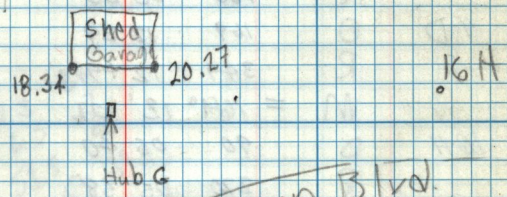 Shed
Garag
18.34
20.27
16 H
Hub G
Blvd.